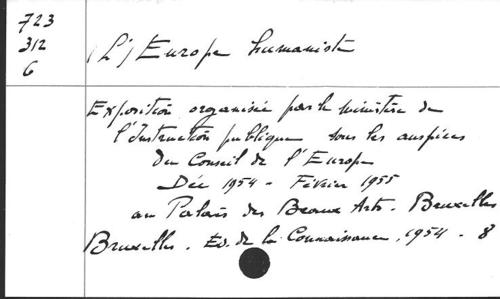 723
312
6
(L') Europe humaniste
Exposition organisée par le Ministère de
l'Instruction publique sous les auspices
du Conseil de l'Europe
Déc 1954 - Février 1955
au Palais des Beaux Arts. Bruxelles
Bruxelles. Ed. de la Connaissance, 1954. 8